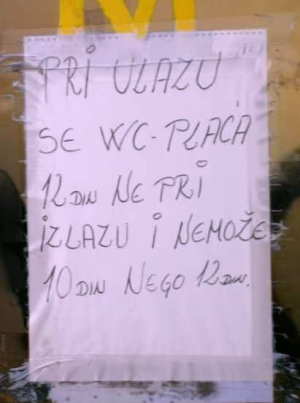 M
PRİ ULAZU
SE WC-PLAĆA
12 DIN NE PRİ
İZLAZU İ NEMOŽE
10 DIN NEGO 12 DIN.